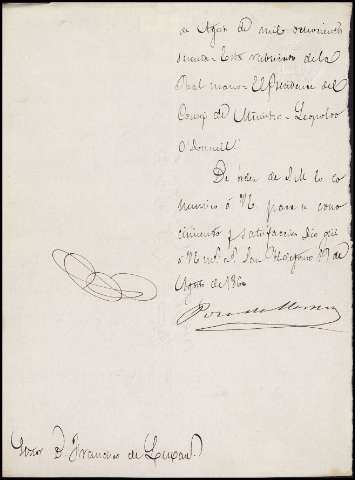 de Agosto de mil ochocientos
sesenta = Está rubricado de la
Real mano = El Presidente del
Consejo de Ministros = Leopoldo
O'Donnell"
De orden de S.M. lo co
munico á V.E. para su cono
cimiento y satisfaccion. Dios gue
á V.E. ms. as. San Ildefonso de
Agosto de 1860
Señor D. Francisco de Luxan.